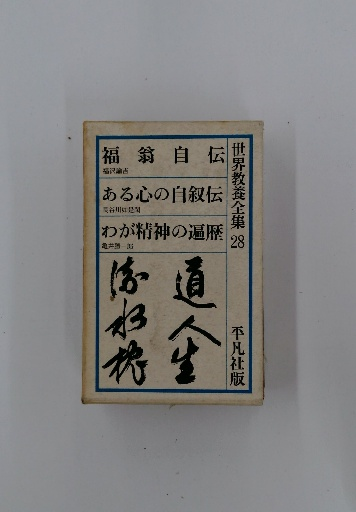 世界教養全集 28
平凡社版
福翁自伝
福沢諭吉
ある心の自叙伝
長谷川如是閑
わが精神の遍歴
亀井勝一郎
道人生